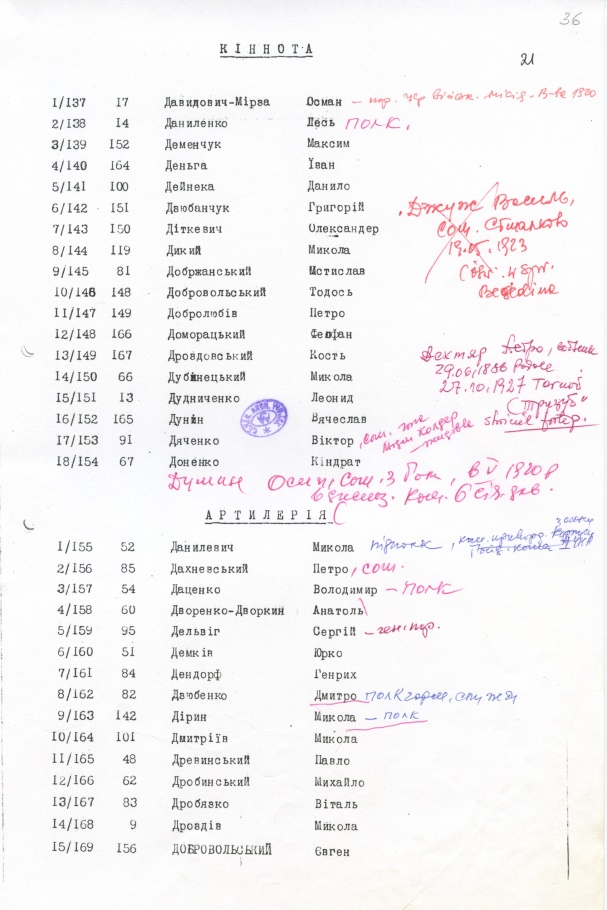 36
КІННОТА
21
1/137 17 Давидович-Мірза Осман
2/138 14 Даниленко Лесь полк.
3/139 152 Деменчук Максим
4/140 164 Деньга Їван
5/141 100 Дейнека Данило
6/142 151 Двюбанчук Григорій Джуж Василь,
7/143 150 Діткевич Олександер сот.
8/144 119 Дикий Микола 19.05.1923
9/145 81 Добржанський Мстислав
10/146 148 Добровольський Тодось
11/147 149 Добролюбів Петро
12/148 166 Доморацький Феофан
13/149 167 Дроздовський Кость Дехтяр Петро,
14/150 66 Дубінецький Микола 29.06.1886
15/151 13 Дудниченко Леонид 27.10.1927
16/152 165 Дунін Вячеслав
17/153 91 Дяченко Віктор
18/154 67 Доненко Кіндрат
Думан Осип, Сот. 3 1920 р
АРТИЛЕРІЯ
1/155 52 Данилевич Микола підполк
2/156 85 Дахневський Петро, сот.
3/157 54 Даценко Володимир – полк
4/158 60 Дворенко-Дворкин Анатоль
5/159 95 Дельвіг Сергій – ген. пор.
6/160 51 Демків Юрко
7/161 84 Дендорф Генрих
8/162 82 Двюбенко Дмитро
9/163 142 Дірин Микола – полк
10/164 101 Дмитріїв Микола
11/165 48 Древинський Павло
12/166 62 Дробинський Михайло
13/167 83 Дробязко Віталь
14/168 9 Дроздів Микола
15/169 156 ДОБРОВОЛЬСЬКИЙ Євген